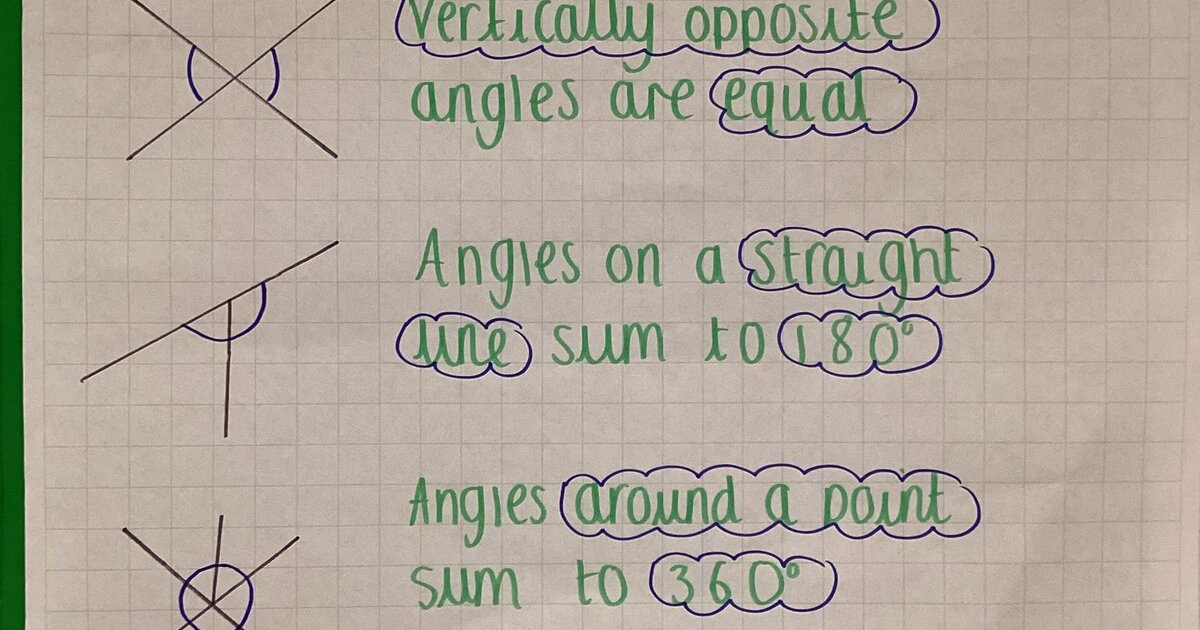 Vertically opposite
angles are equal
Angles on a straight
line sum to 180°
Angles around a point
sum to 360°